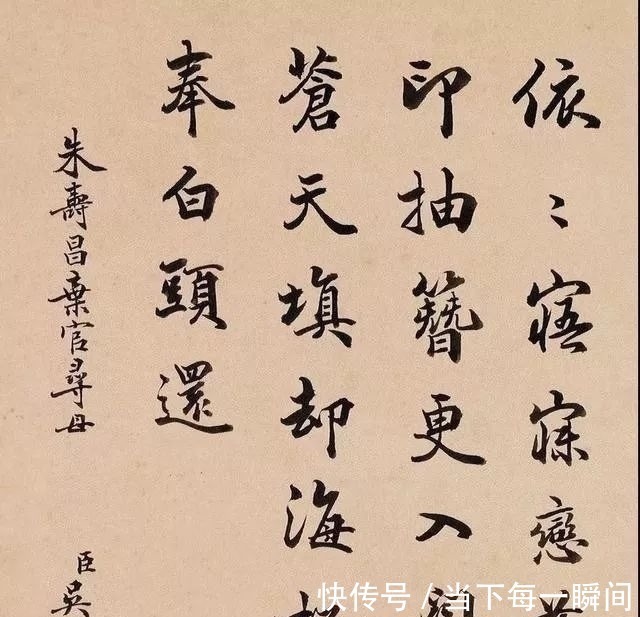 依〻寤寐戀
印抽簪更入
蒼天填却海
奉白頭還
朱壽昌棄官尋母
臣吳
快传号 / 当下每一瞬间